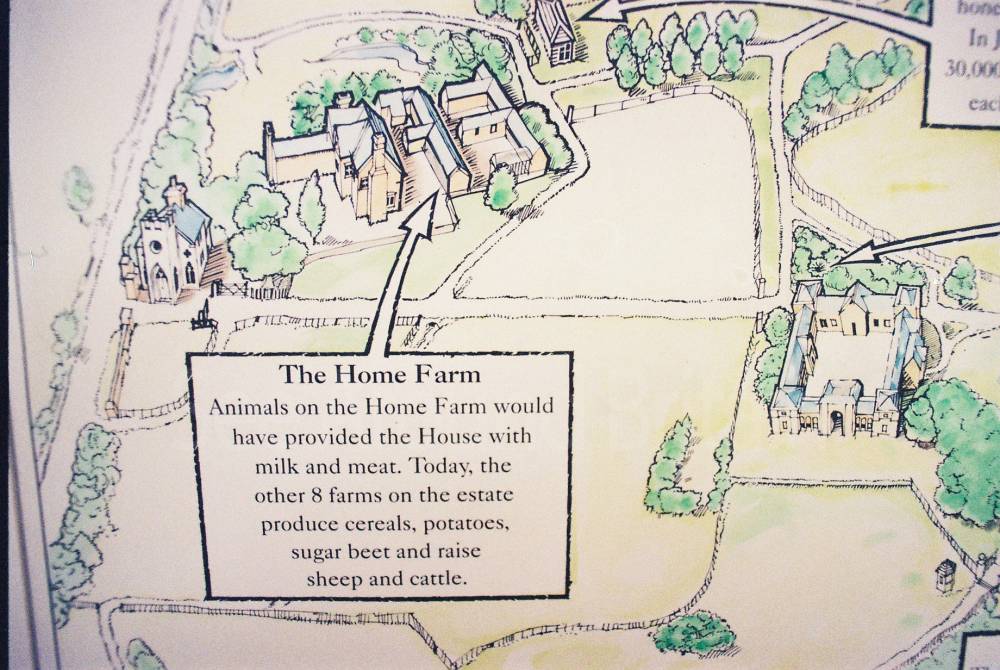 In
30,000
The Home Farm
Animals on the Home Farm would
have provided the House with
milk and meat. Today, the
other 8 farms on the estate
produce cereals, potatoes,
sugar beet and raise
sheep and cattle.